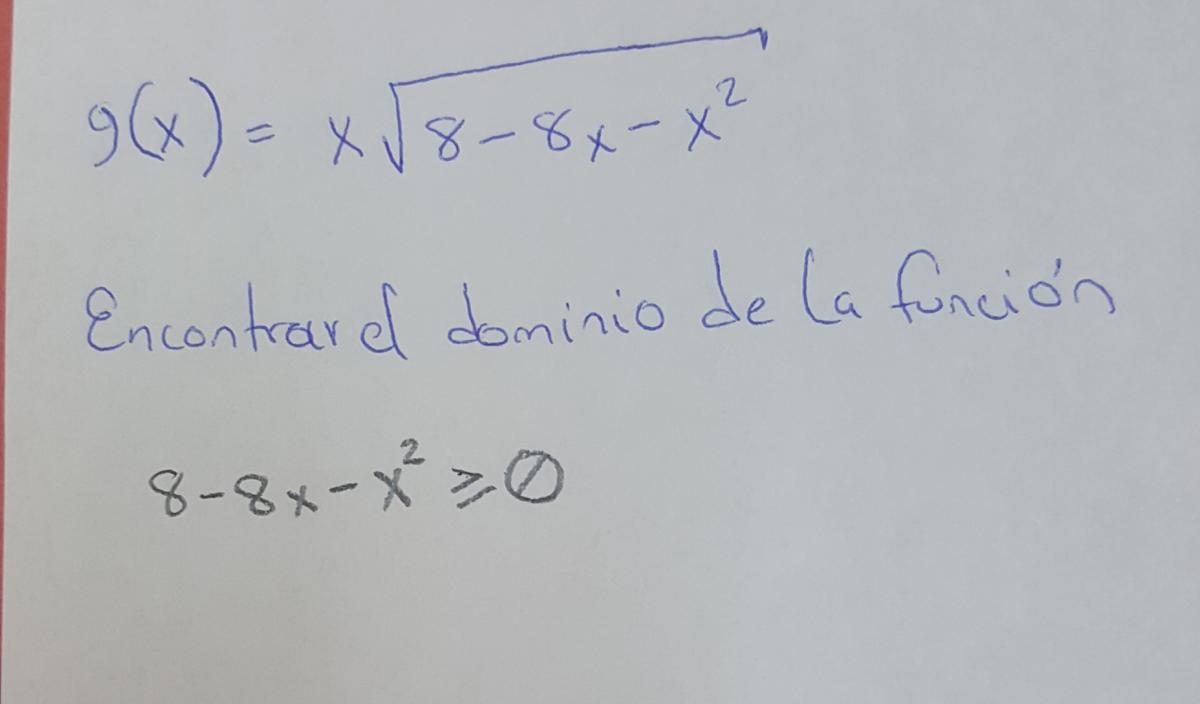 g(x) = x√(8-8x-x²)
Encontrar el dominio de la función
8-8x-x² ≥ 0